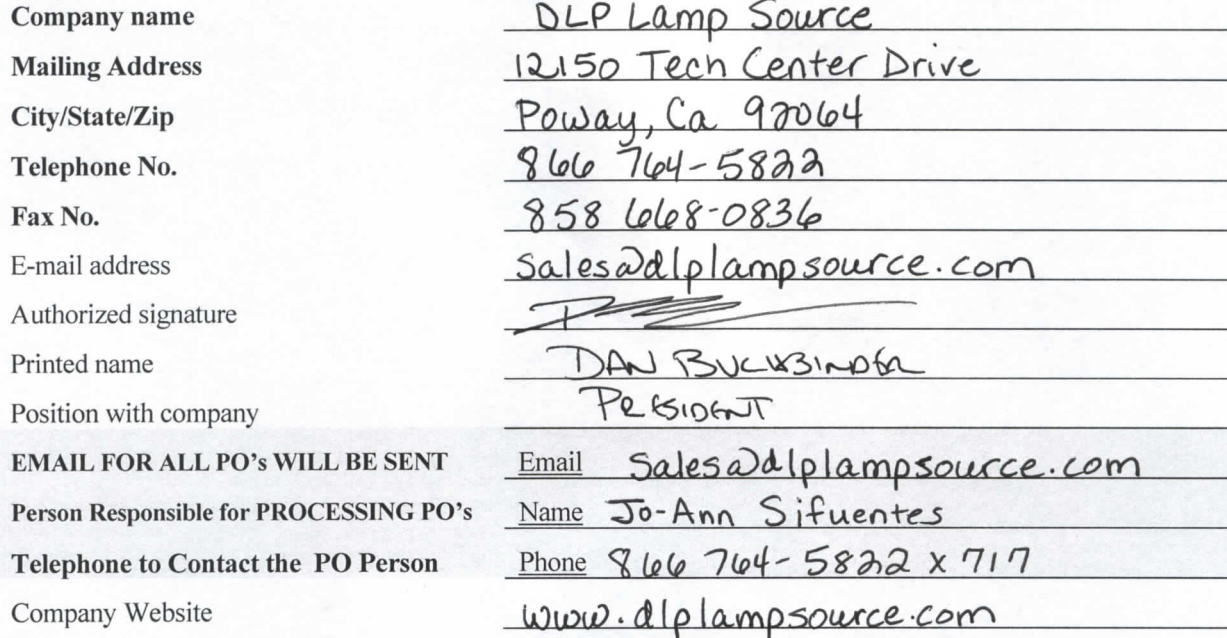 Company name DLP Lamp Source
Mailing Address 12150 Tech Center Drive
City/State/Zip Poway, Ca 92064
Telephone No. 866 764-5822
Fax No. 858 668-0836
E-mail address Sales@dlplampsource.com
Authorized signature
Printed name DAN BUCKBINDER
Position with company PRESIDENT
EMAIL FOR ALL PO's WILL BE SENT Email Sales@dlplampsource.com
Person Responsible for PROCESSING PO's Name Jo-Ann Sifuentes
Telephone to Contact the PO Person Phone 866 764-5822 x 717
Company Website www.dlplampsource.com